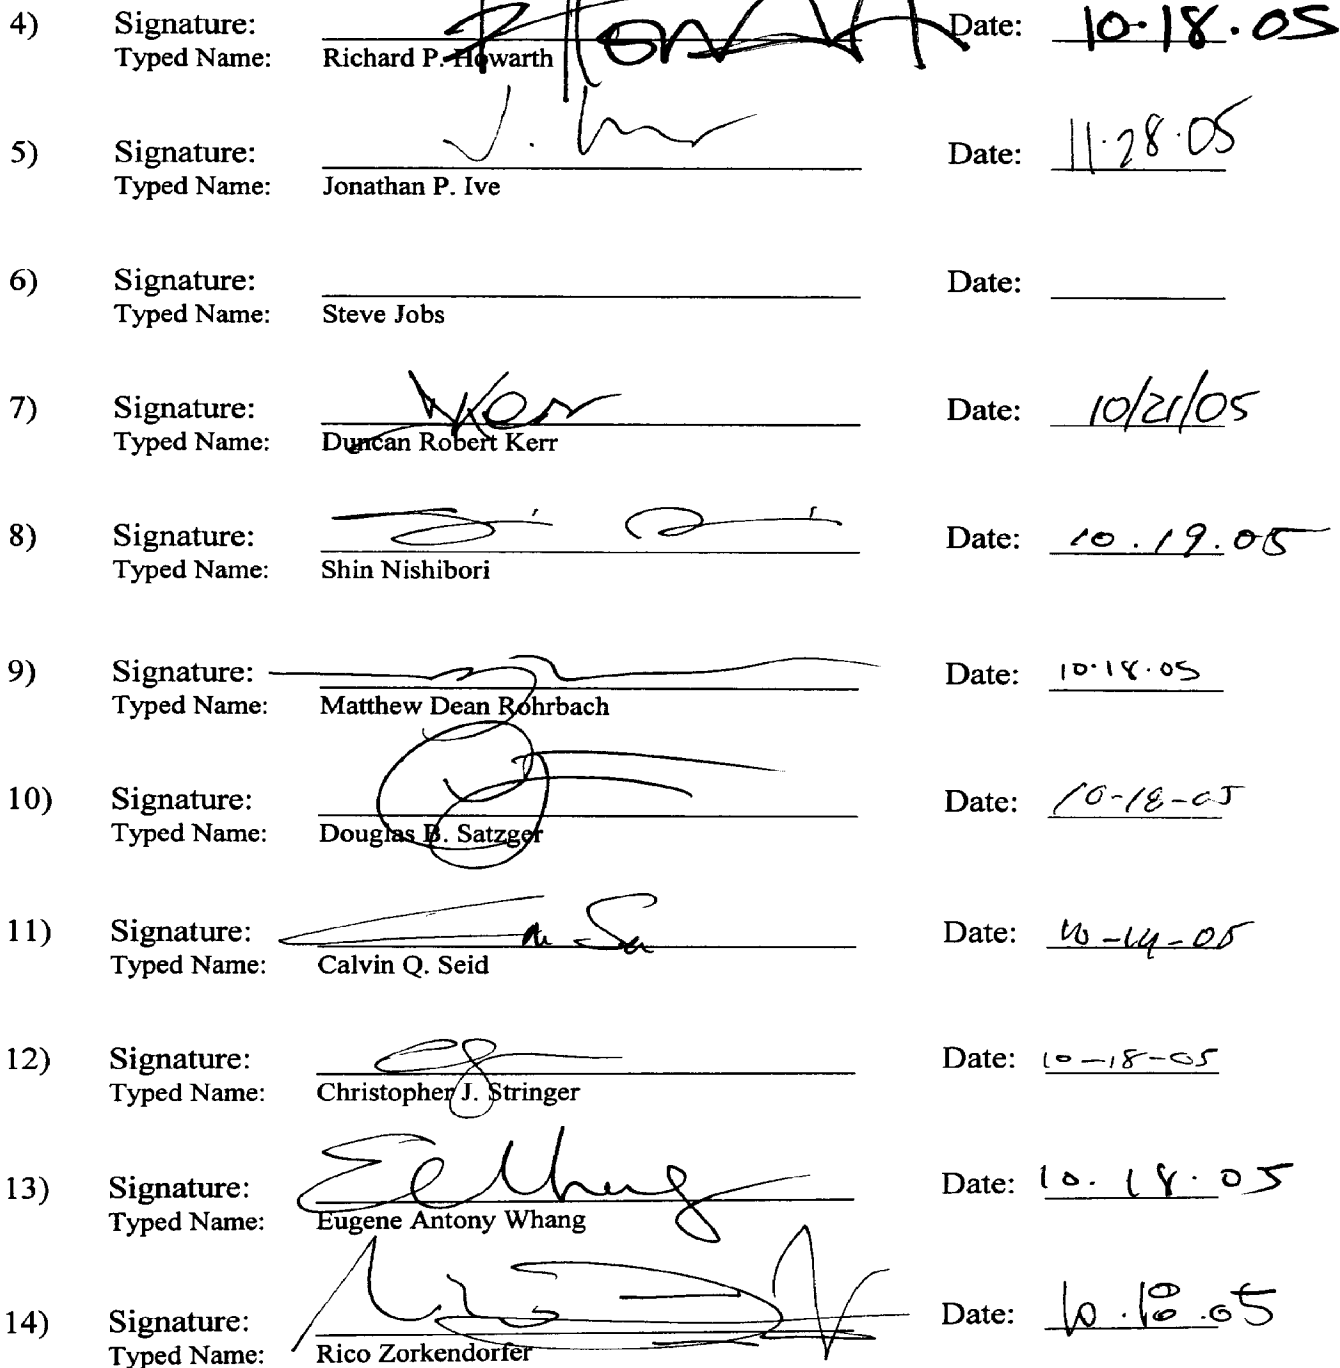 4) Signature: R Howarth Date: 10·18·05
Typed Name: Richard P. Howarth
5) Signature: Date: 11·28·05
Typed Name: Jonathan P. Ive
6) Signature: Date:
Typed Name: Steve Jobs
7) Signature: Kerr Date: 10/21/05
Typed Name: Duncan Robert Kerr
8) Signature: Date: 10.19.05
Typed Name: Shin Nishibori
9) Signature: Date: 10·18·05
Typed Name: Matthew Dean Rohrbach
10) Signature: Date: 10-18-05
Typed Name: Douglas B. Satzger
11) Signature: Date:
Typed Name: Calvin Q. Seid
12) Signature: Date: 10-18-05
Typed Name: Christopher J. Stringer
13) Signature: Date: 10.18.05
Typed Name: Eugene Antony Whang
14) Signature: Date: 10.18.05
Typed Name: Rico Zorkendorfer